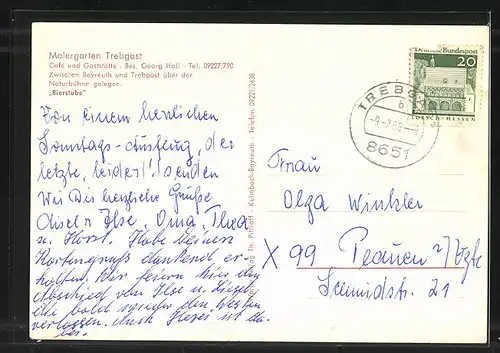 Malergarten Trebgast
Café und Gaststätte · Bes. Georg Hall · Tel. 09227/790
Zwischen Bayreuth und Trebgast über der
Naturbühne gelegen.
„Bierstube"
Von einem herrlichen
Sonntags-Ausflug, der
letzte, leider! senden
Wir Dir herzliche Grüße
Ilse, Oma, Thea
u. Horst. Habe Deinen
Kartengruß dankend er
halten. Wir feiern hier den
Abschied von Ilse u.
die bald wieder den Westen
verlassen. Auch ist da
bei.
Kulmbach-Bayreuth · Telefon 09221/2638
Deutsche Bundespost
20
LORSCH/HESSEN
TREBG
b
8651
Frau
Olga Winkler
X 99 Plauen i/Vgtl
Schmidstr. 21